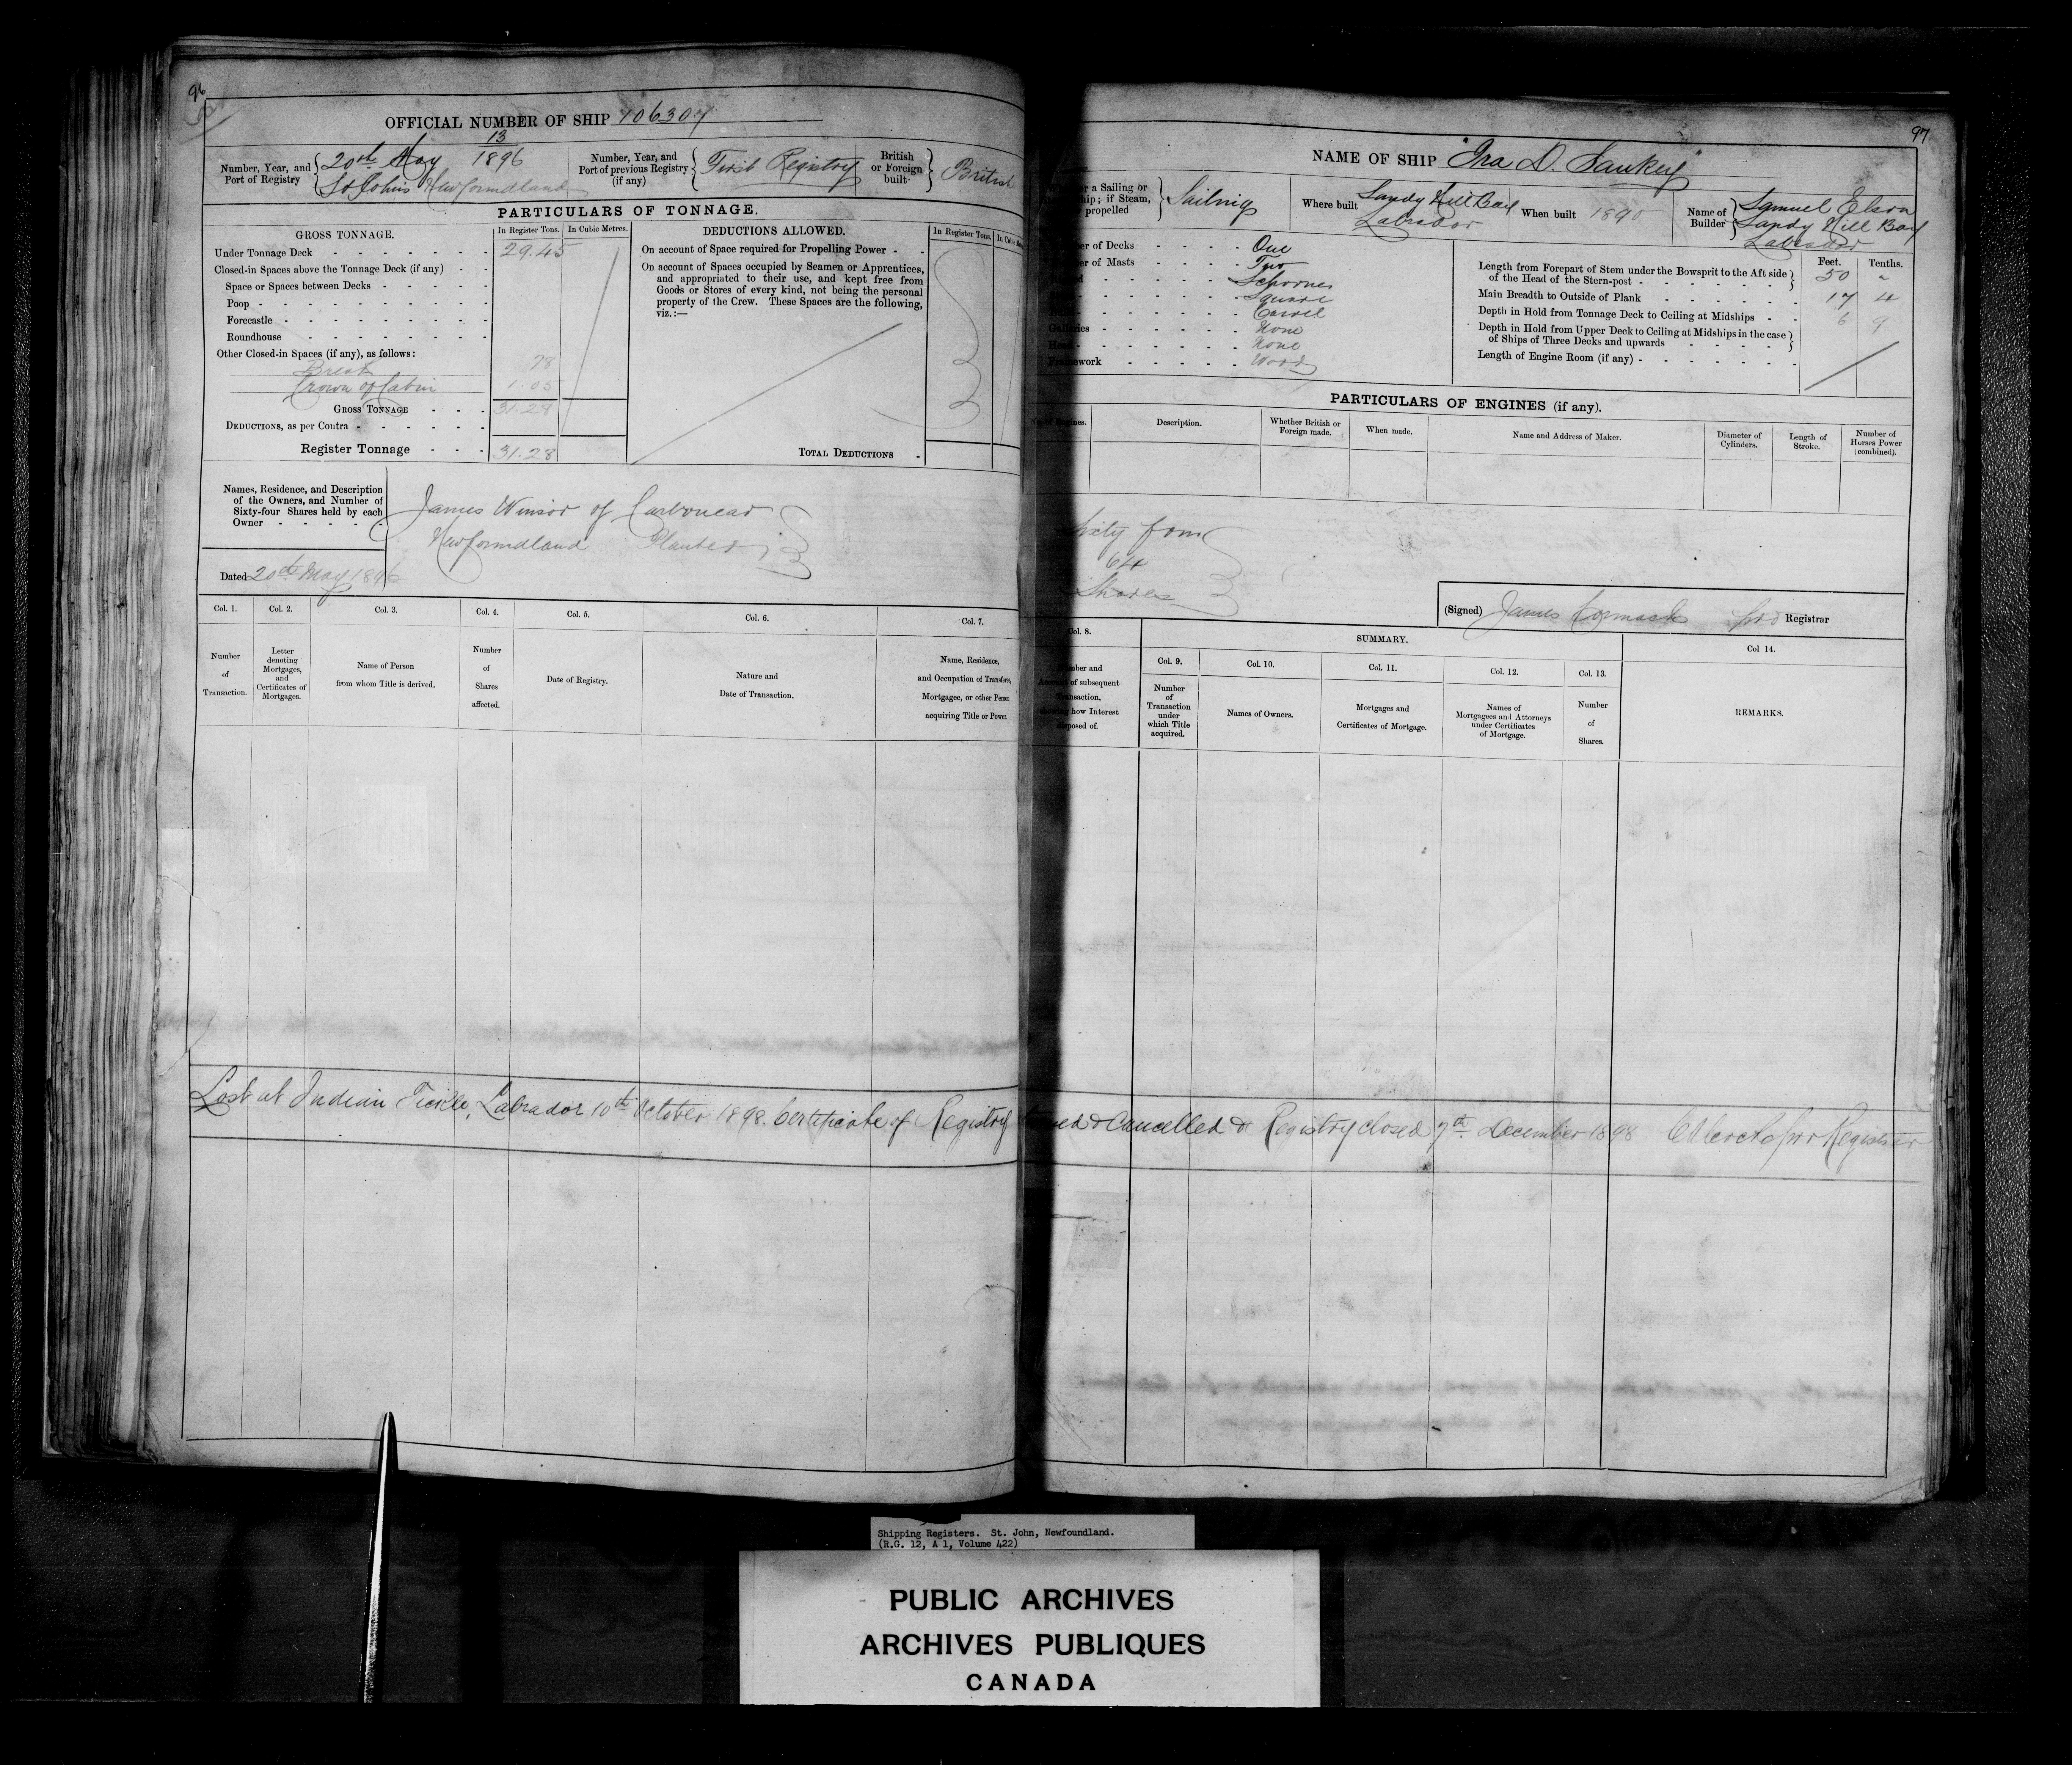 96
OFFICIAL NUMBER OF SHIP 106307
Number, Year, and Port of Registry
13
20th May 1896
St Johns Newfoundland
Number, Year, and Port of previous Registry (if any)
First Registry
British or Foreign built
British
PARTICULARS OF TONNAGE.
GROSS TONNAGE.
In Register Tons.
In Cubic Metres.
Under Tonnage Deck 29.45
Closed-in Spaces above the Tonnage Deck (if any)
Space or Spaces between Decks
Poop
Forecastle
Roundhouse
Other Closed-in Spaces (if any), as follows:
Break 78
Crown of Cabin 1.05
GROSS TONNAGE 31.28
DEDUCTIONS, as per Contra
Register Tonnage 31.28
DEDUCTIONS ALLOWED.
In Register Tons.
On account of Space required for Propelling Power
On account of Spaces occupied by Seamen or Apprentices,
and appropriated to their use, and kept free from
Goods or Stores of every kind, not being the personal
property of the Crew. These Spaces are the following,
viz.:—
TOTAL DEDUCTIONS
Names, Residence, and Description
of the Owners, and Number of
Sixty-four Shares held by each
Owner
James Winsor of Carbonear
Newfoundland Planter
Dated 20th May 1896
Col. 1. Col. 2. Col. 3. Col. 4. Col. 5. Col. 6. Col. 7.
Number of Transaction.
Letter denoting Mortgages, and Certificates of Mortgages.
Name of Person from whom Title is derived.
Number of Shares affected.
Date of Registry.
Nature and Date of Transaction.
Name, Residence, and Occupation of Transferee, Mortgagee, or other Person acquiring Title or Power.
Lost at Indian Tickle, Labrador 10th October 1898. Certificate of Registry
97
NAME OF SHIP "Ira D. Sankey"
a Sailing or
ship; if Steam,
propelled
Sailing
Where built
Sandy Hill Bay
Labrador
When built 1890
Name of Builder
Samuel Elson
Sandy Hill Bay
Labrador
of Decks One
of Masts Two
Schooner
Square
Carvel
Galleries None
Head None
Framework Wood
Feet. Tenths.
Length from Forepart of Stem under the Bowsprit to the Aft side
of the Head of the Stern-post 50 "
Main Breadth to Outside of Plank 17 4
Depth in Hold from Tonnage Deck to Ceiling at Midships 6 9
Depth in Hold from Upper Deck to Ceiling at Midships in the case
of Ships of Three Decks and upwards
Length of Engine Room (if any)
PARTICULARS OF ENGINES (if any).
Engines.
Description.
Whether British or Foreign made.
When made.
Name and Address of Maker.
Diameter of Cylinders.
Length of Stroke.
Number of Horses Power (combined).
Sixty four
64
Shares
(Signed) James Cormack pro Registrar
Col. 8.
SUMMARY.
Col 14.
Number and
of subsequent
Transaction,
how Interest
disposed of.
Col. 9. Col. 10. Col. 11. Col. 12. Col. 13.
Number of Transaction under which Title acquired.
Names of Owners.
Mortgages and Certificates of Mortgage.
Names of Mortgagees and Attorneys under Certificates of Mortgage.
Number of Shares.
REMARKS.
Cancelled & Registry closed 7th December 1898 pro Registrar
Shipping Registers. St. John, Newfoundland.
(R.G. 12, A 1, Volume 422)
PUBLIC ARCHIVES
ARCHIVES PUBLIQUES
CANADA